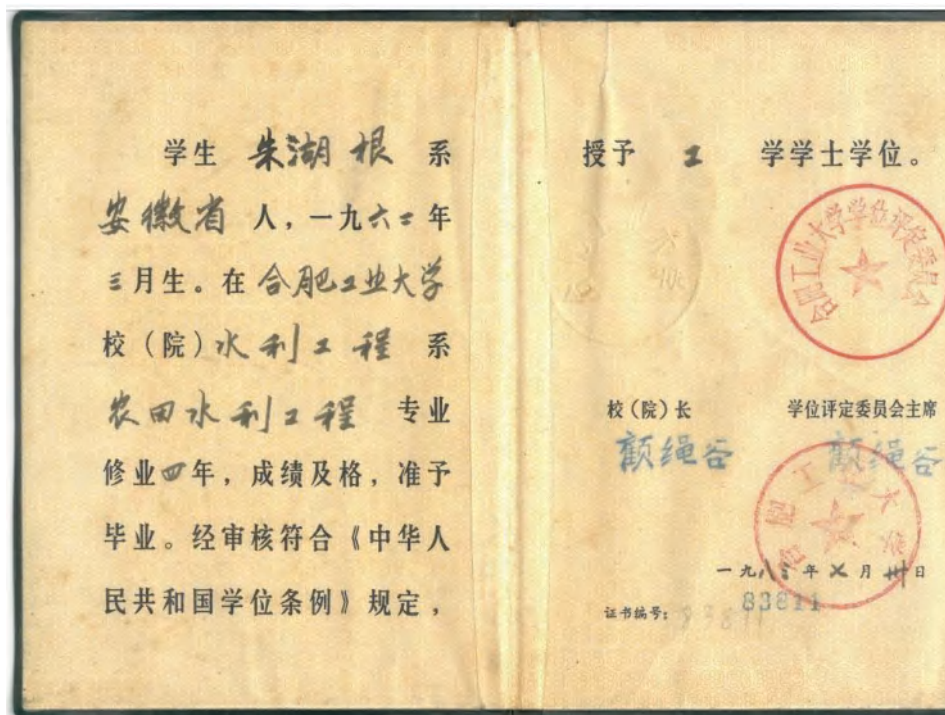 学生 朱湖根 系
安徽省 人，一九六二年
三月生。在合肥工业大学
校（院）水利工程 系
农田水利工程 专业
修业四年，成绩及格，准予
毕业。经审核符合《中华人
民共和国学位条例》规定，
授予 工 学学士学位。
合肥工业大学学位评定委员会
校（院）长
学位评定委员会主席
颜绳谷
颜绳谷
合肥工业大学
一九八三年七月卅日
证书编号：
83811